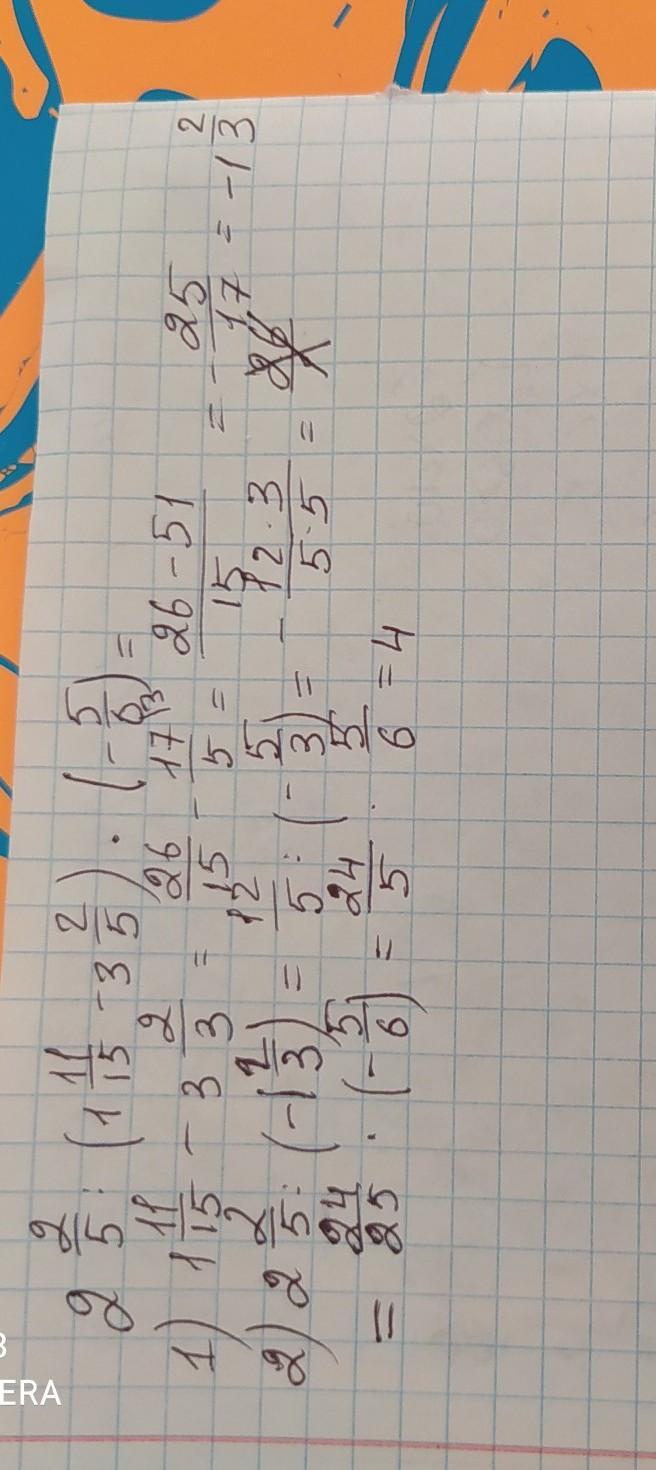 2 2/5 : (1 11/15 - 3 2/5) · (- 5/6) =
1) 1 11/15 - 3 2/3 = 26/15 - 17/5 = (26 - 51)/15 = - 25/17 = -1 2/3
2) 2 2/5 : (-1 2/3) = 12/5 : (- 5/3) = - (12 · 3)/(5 · 5) =
= 24/25 · (- 5/6) = 24/5 · 5/6 = 4
ERA